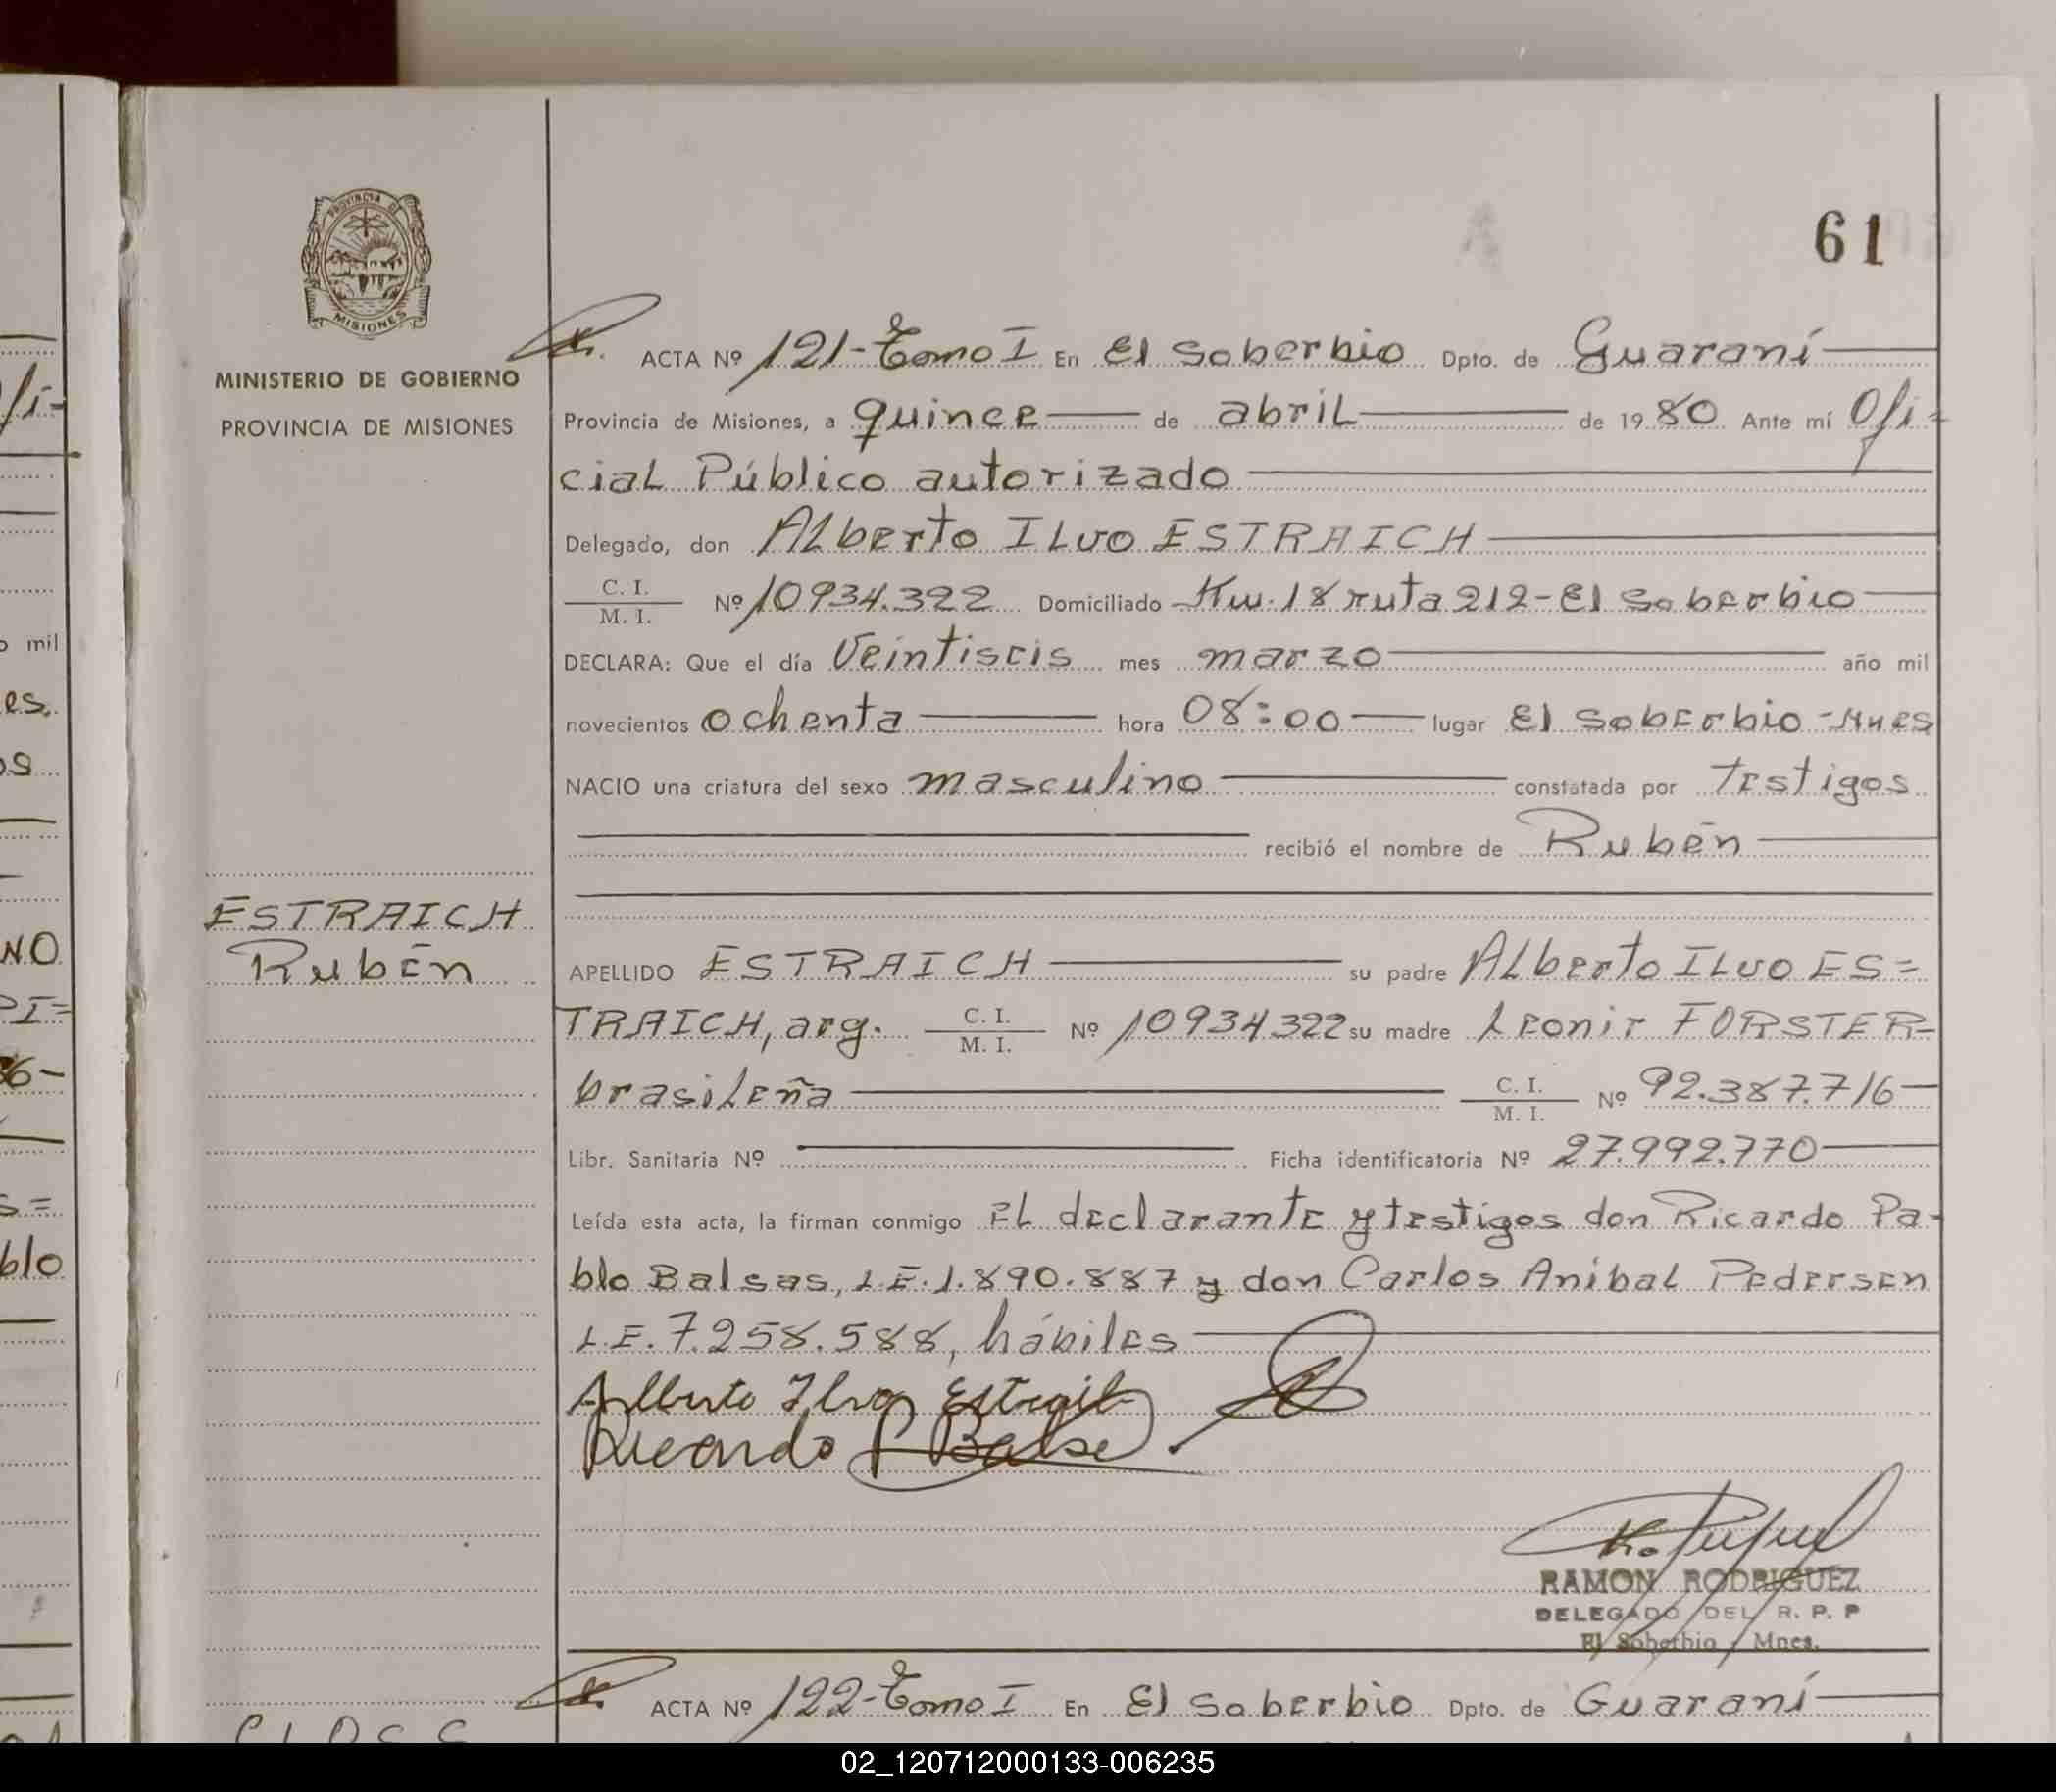 61
PROVINCIA DE
MISIONES
MINISTERIO DE GOBIERNO
PROVINCIA DE MISIONES
ESTRAICH
Rubén
ACTA Nº 121-Tomo I En El Soberbio Dpto. de Guaraní
Provincia de Misiones, a quince de abril de 1980 Ante mí Ofi=
cial Público autorizado
Delegado, don Alberto Ilvo ESTRAICH
C. I.
M. I. Nº 10934.322 Domiciliado Km. 18 ruta 212-El Soberbio
DECLARA: Que el día Veintiseis mes marzo año mil
novecientos ochenta hora 08:00 lugar El Soberbio-Mnes
NACIO una criatura del sexo masculino constatada por Testigos
recibió el nombre de Rubén
APELLIDO ESTRAICH su padre Alberto Ilvo ES=
TRAICH, arg. C. I.
M. I. Nº 10934322 su madre Leonir FORSTER-
brasileña C. I.
M. I. Nº 92.387.716
Libr. Sanitaria Nº Ficha identificatoria Nº 27.992.770
Leída esta acta, la firman conmigo el declarante y testigos don Ricardo Pa-
blo Balsas, L.E. 1.890.887 y don Carlos Anibal Pedersen
L.E. 7.258.588, hábiles
Alberto Ilvo Estraich
Ricardo P Balsa
RAMON RODRIGUEZ
DELEGADO DEL R. P. P
El Soberbio - Mnes.
ACTA Nº 122-Tomo I En El Soberbio Dpto. de Guaraní
02_120712000133-006235